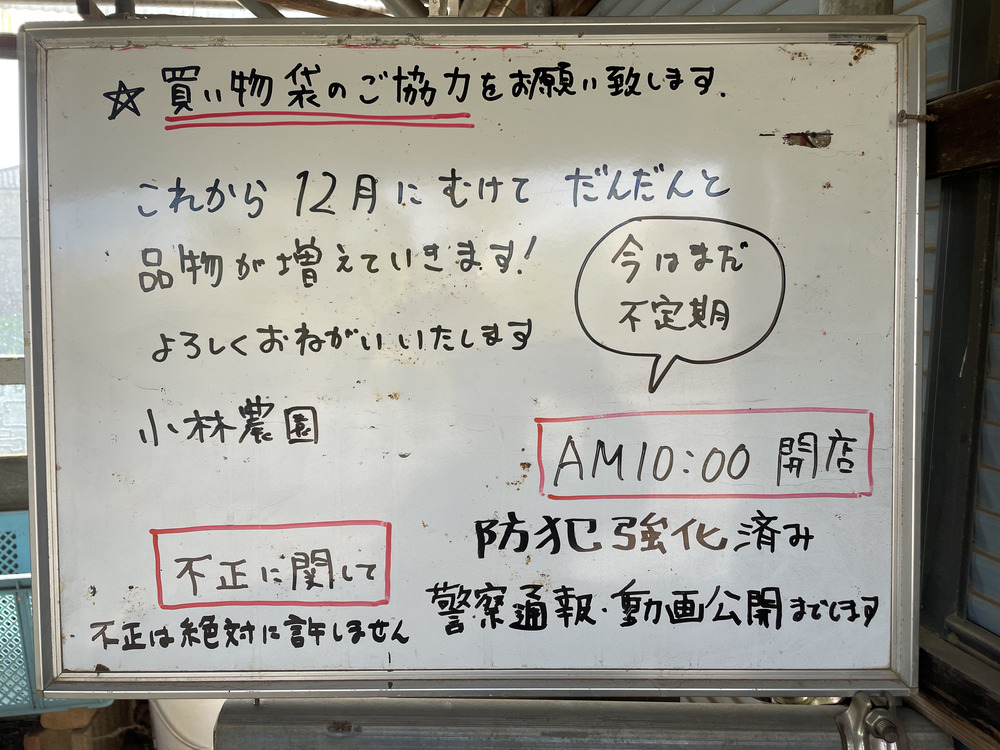 ☆ 買い物袋のご協力をお願い致します.
これから12月にむけて だんだんと
品物が増えていきます!
今はまだ
不定期
よろしくおねがいいたします
小林農園
AM10:00 開店
防犯強化済み
不正に関して
警察通報・動画公開までします
不正は絶対に許しません